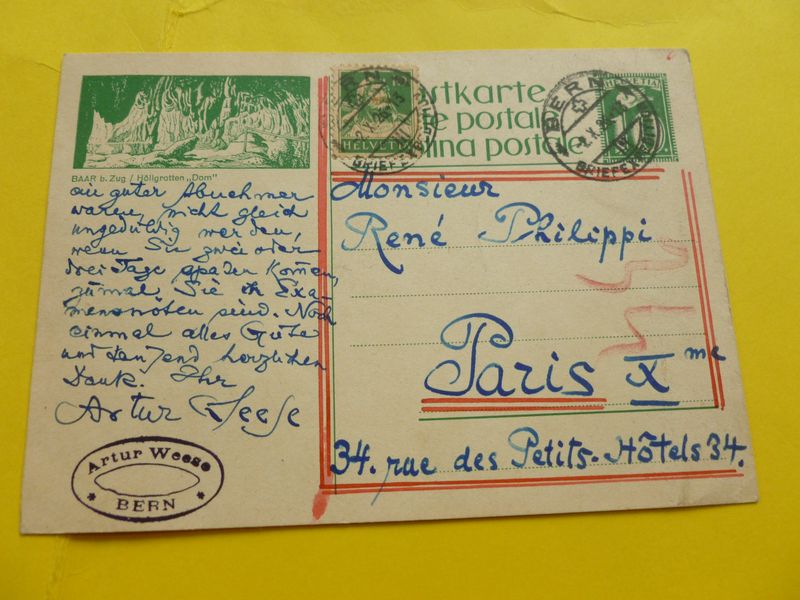 BAAR b. Zug / Höllgrotten „Dom"
ein guter Abnehmer
waren, nicht gleich
ungeduldig werden,
wenn Sie zwei oder
drei Tage später kommen,
zumal Sie in Exa-
mensnöten sind. Noch
einmal alles Gute
und tausend herzlichen
Dank. Ihr
Artur Weese
Artur Weese
BERN
stkarte
postal
lina postale
HELVETIA
HELVETIA
BERN
BRIEF
BERN
BRIEF
Monsieur
René Philippi
Paris X me
34. rue des Petits-Hôtels 34.